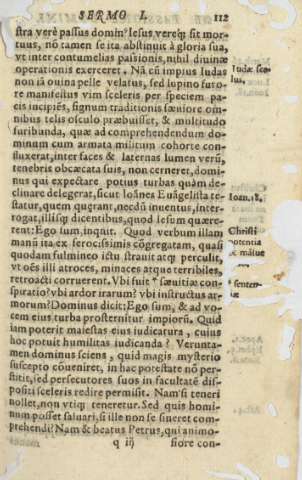 SERMO I. 112
stra verè passus domin9 Iesus, vereq́; sit mor-
tuus, nō tamen se ita abstinuit à gloria sua,
vt inter contumelias passionis, nihil diuinæ
operationis exerceret. Nã cũ impius Iudas
non iã ouina pelle velatus, sed lupino furo-
re manifestus vim sceleris per speciem pa-
cis incipiẽs, signum traditionis sæuiore om-
nibus telis osculo præbuisset, & multitudo
furibunda, quæ ad comprehendendum do-
minum cum armata militum cohorte con-
fluxerat, inter faces & laternas lumen verũ,
tenebris obcæcata suis, non cerneret, domi-
nus qui expectare potius turbas quàm de-
clinare delegerat, sicut Ioānes Euāgelista te-
statur, quem quærant, necdũ inuentus, inter-
rogat, illisq́; dicentibus, quod Iesum quære-
rent: Ego sum, inquit. Quod verbum illam
manũ ita ex ferocissimis cōgregatam, quasi
quodam fulmineo ictu strauit atq; perculit,
vt oẽs illi atroces, minaces atque terribiles,
retroacti corruerent. Vbi fuit sæuitiæ con-
spiratio? vbi ardor irarum? vbi instructus ar-
morum? Dominus dicit: Ego sum, & ad vo-
cem eius turba prosternitur impiorũ. Quid
iam poterit maiestas eius iudicatura, cuius
hoc potuit humilitas iudicanda? Verunta-
men dominus sciens, quid magis mysterio
suscepto cōueniret, in hac potestate nō per-
stitit, sed persecutores suos in facultatẽ dis-
positi sceleris redire permisit. Nam si teneri
nollet, non vtiq; teneretur. Sed quis homi-
num posset saluari, si ille non se sineret com-
prehendi? Nam & beatus Petrus, qui animo-
q ij siore con-
Iudæ sce-
lus.
Ioan. 18.
Christi
potentia